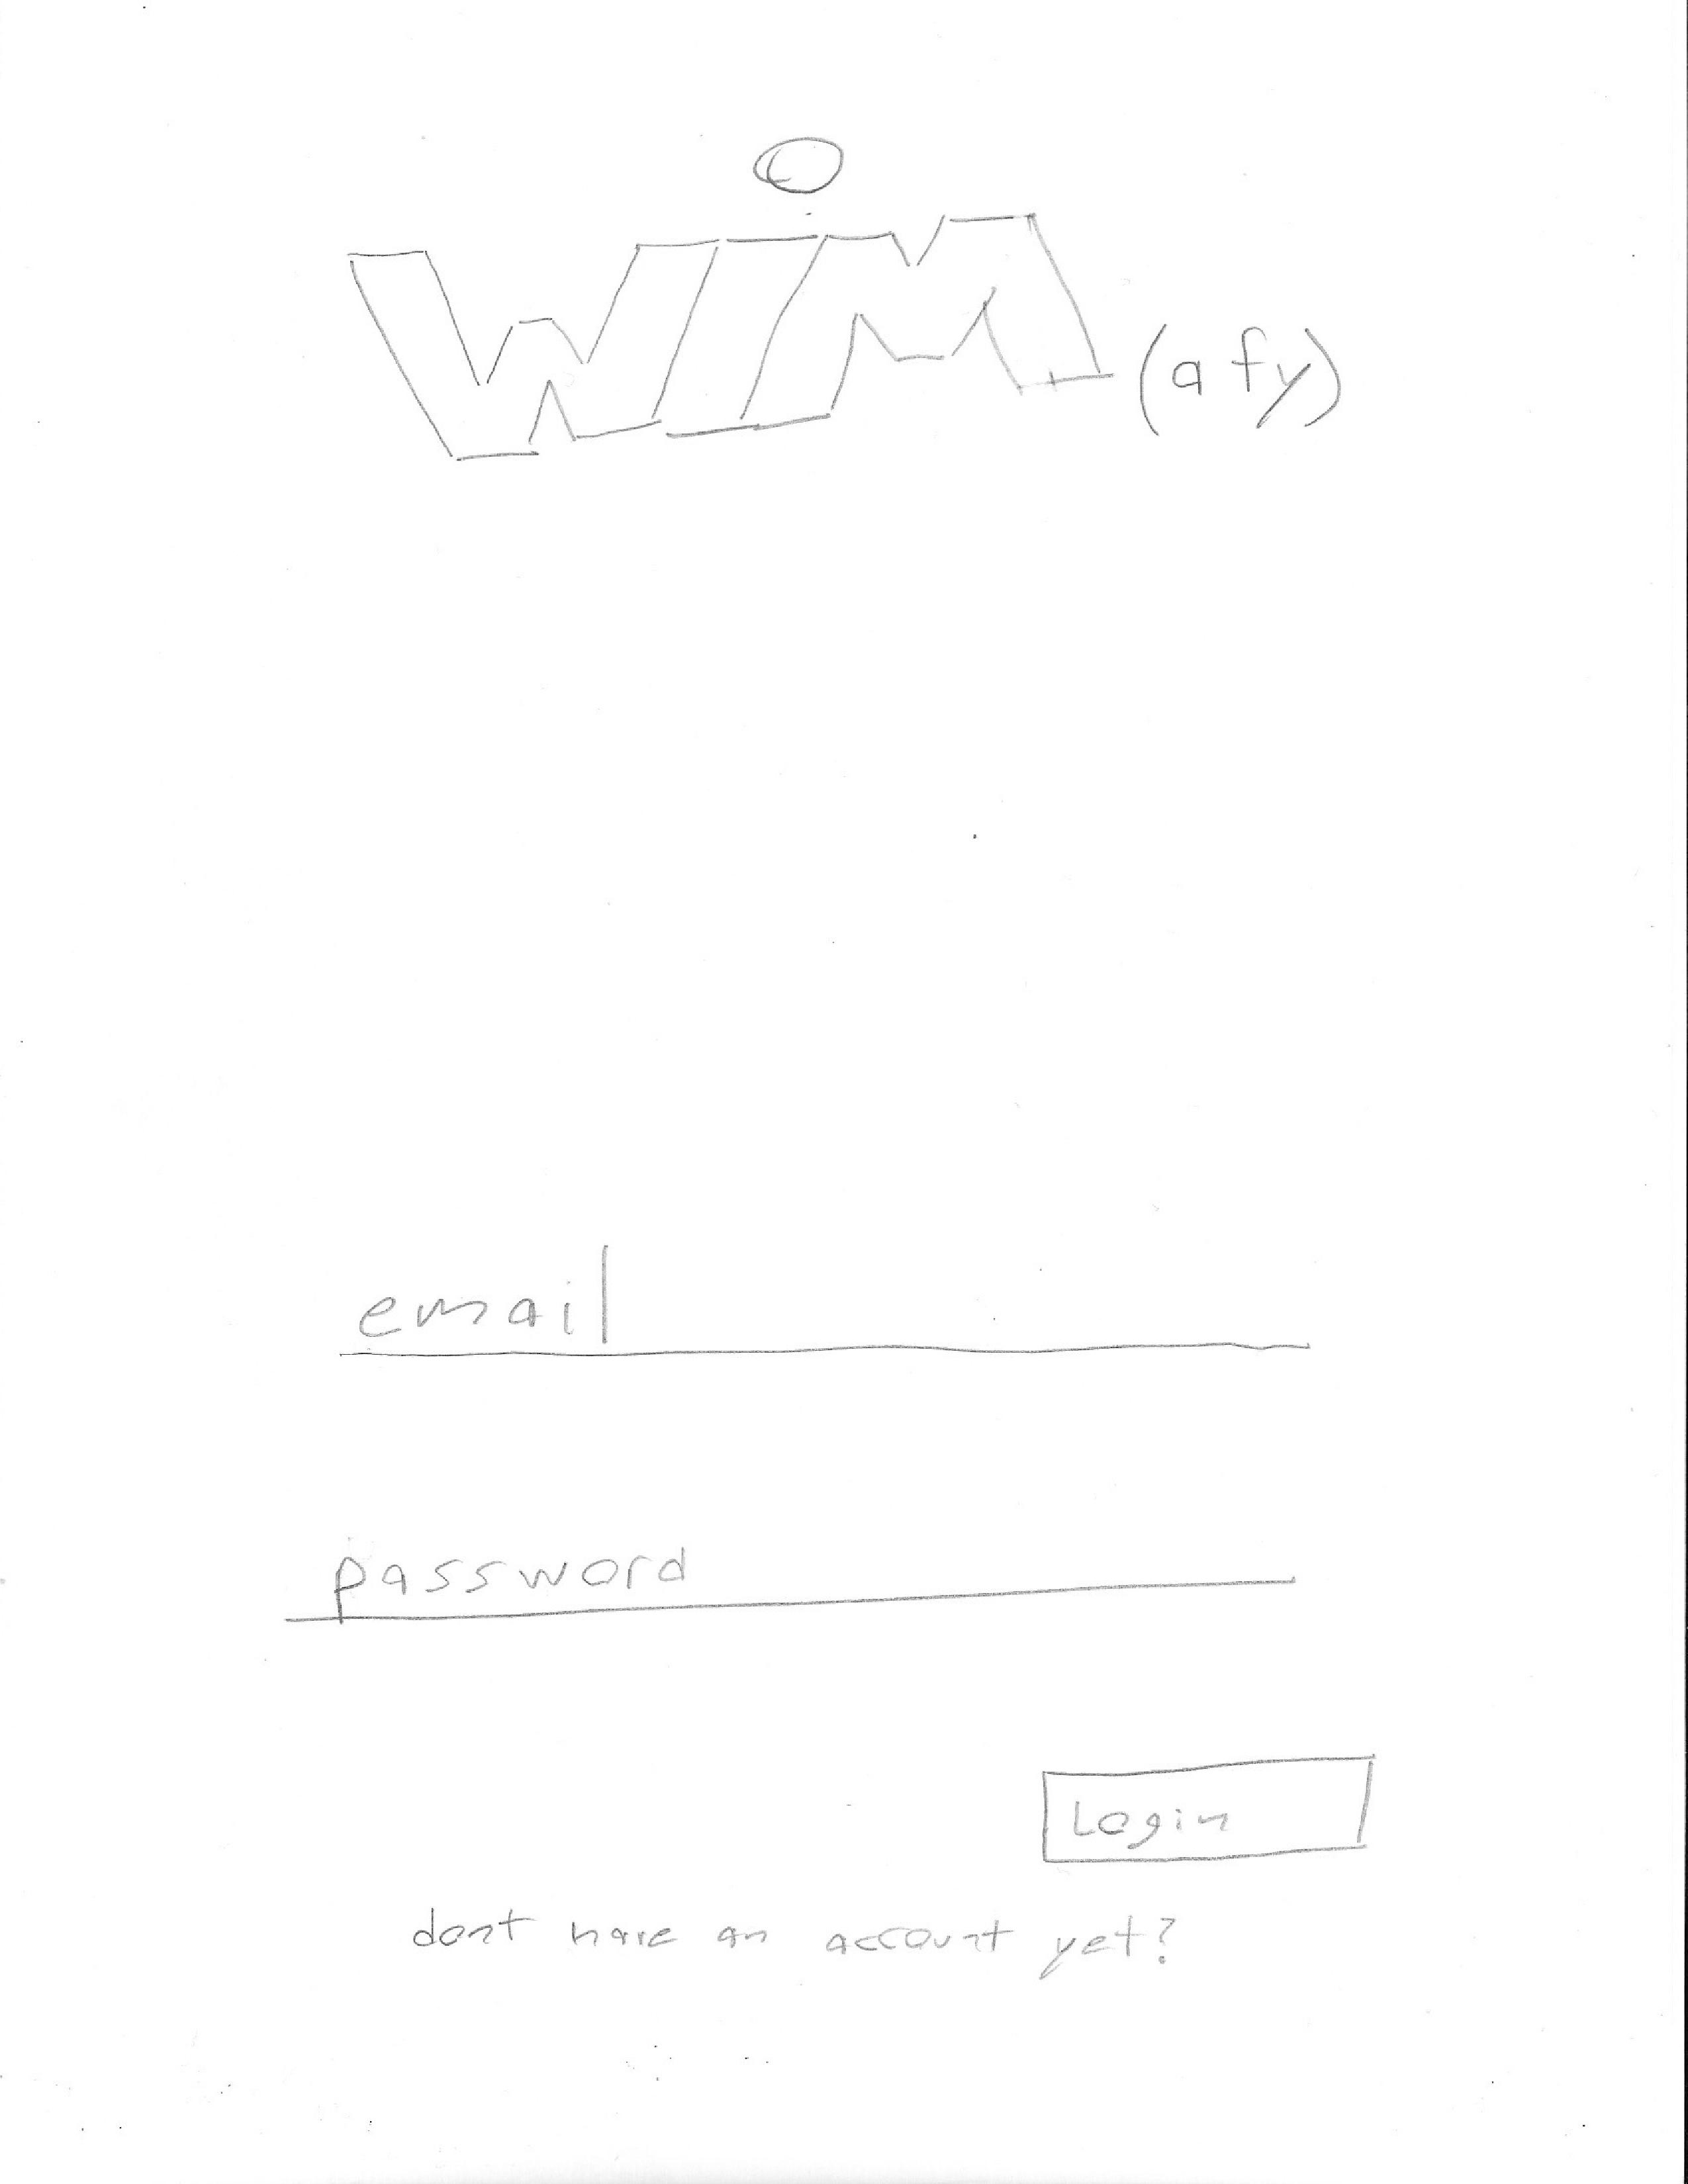 WiM (afy)
email
password
Login
dont have an account yet?